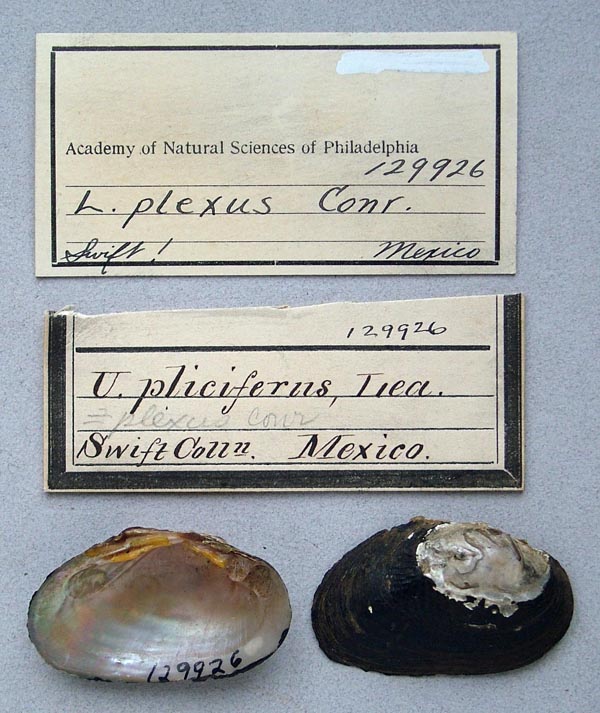 Academy of Natural Sciences of Philadelphia
129926
L. plexus Conr.
Swift! Mexico
129926
U. pliciferus, Lea.
= plexus Conr
Swift Colln. Mexico.
129926